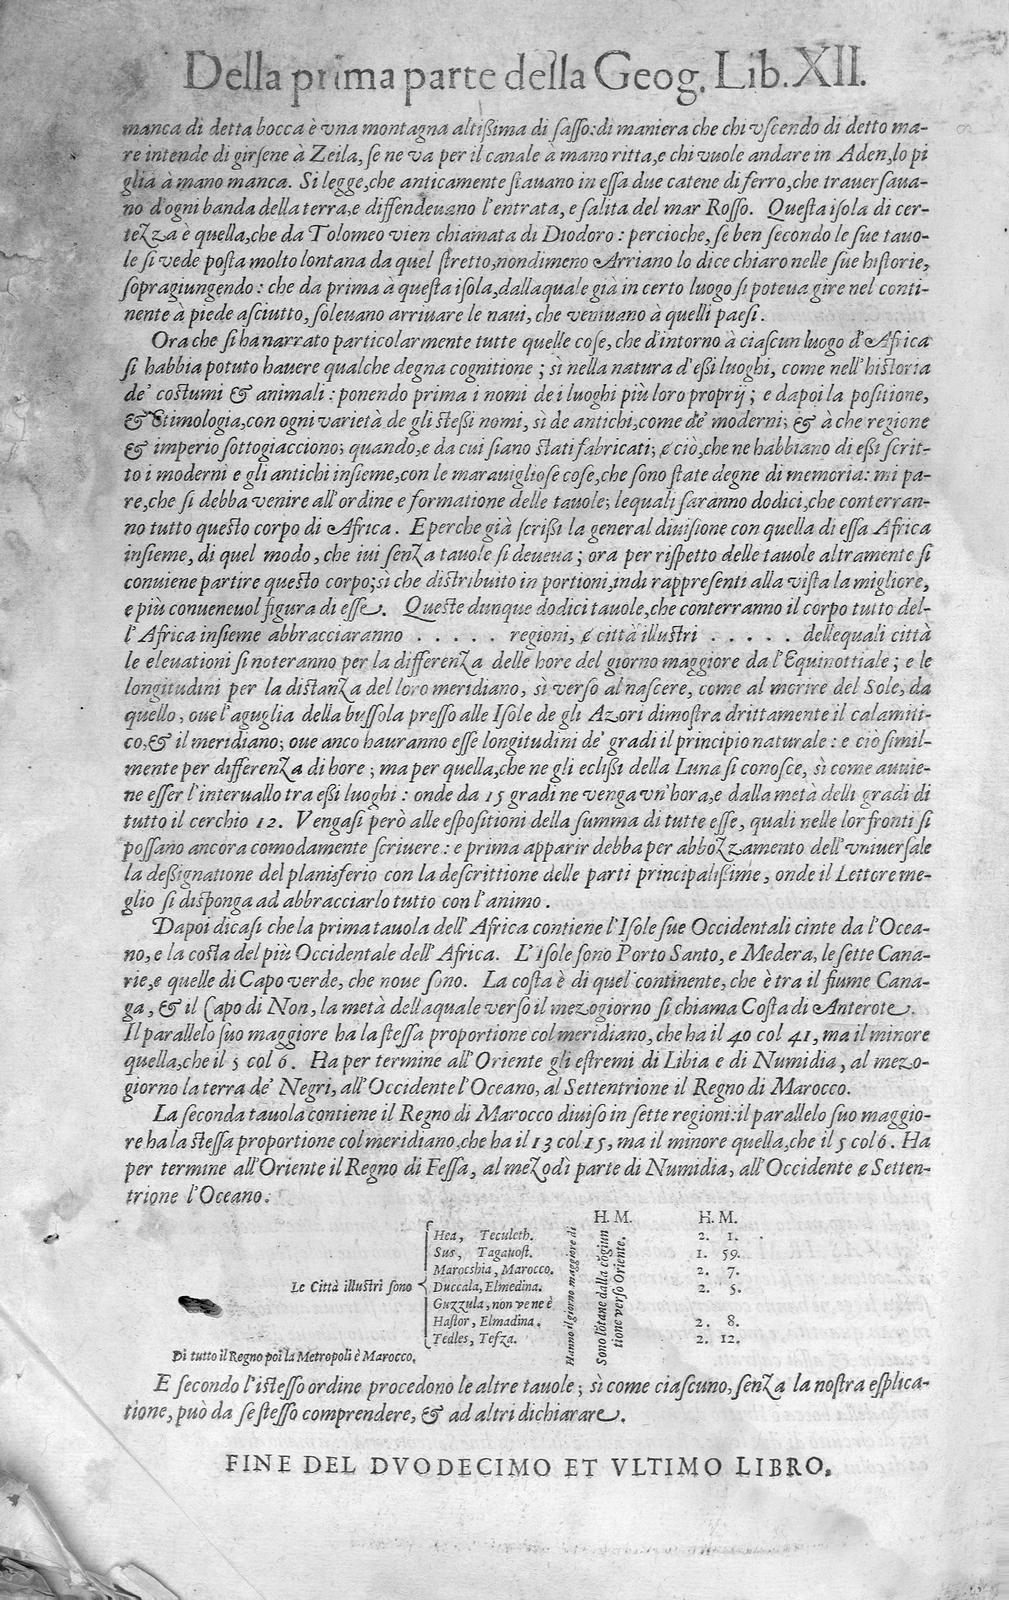 Della prima parte della Geog. Lib. XII.
manca di detta bocca è vna montagna altißima di sasso: di maniera che chi vscendo di detto ma-
re intende di girsene à Zeila, se ne va per il canale à mano ritta, e chi vuole andare in Aden, lo pi
glia à mano manca. Si legge, che anticamente stauano in essa due catene di ferro, che trauersaua-
no d'ogni banda della terra, e diffendeuano l'entrata, e salita del mar Rosso. Questa isola di cer-
tezza è quella, che da Tolomeo vien chiamata di Diodoro: percioche, se ben secondo le sue tauo-
le si vede posta molto lontana da quel stretto, nondimeno Arriano lo dice chiaro nelle sue historie,
sopragiungendo: che da prima à questa isola, dallaquale già in certo luogo si poteua gire nel conti-
nente à piede asciutto, soleuano arriuare le naui, che veniuano à quelli paesi.
Ora che si ha narrato particolarmente tutte quelle cose, che d'intorno à ciascun luogo d'Africa
si habbia potuto hauere qualche degna cognitione; sì nella natura d'eßi luoghi, come nell'historia
de' costumi & animali: ponendo prima i nomi de i luoghi più loro proprij; e dapoi la positione,
& Etimologia, con ogni varietà de gli steßi nomi, sì de antichi, come de' moderni; & à che regione
& imperio sottogiacciono; quando, e da cui siano stati fabricati; e ciò, che ne habbiano di eßi scrit-
to i moderni e gli antichi insieme, con le marauigliose cose, che sono state degne di memoria: mi pa-
re, che si debba venire all'ordine e formatione delle tauole; lequali saranno dodici, che conterran-
no tutto questo corpo di Africa. E perche già scrißi la general diuisione con quella di essa Africa
insieme, di quel modo, che iui senza tauole si deueua; ora per rispetto delle tauole altramente si
conuiene partire questo corpo; sì che distribuito in portioni, indi rappresenti alla vista la migliore,
e più conueneuol figura di esse. Queste dunque dodici tauole, che conterranno il corpo tutto del-
l'Africa insieme abbracciaranno . . . . . regioni, e città illustri . . . . . dellequali città
le eleuationi si noteranno per la differenza delle hore del giorno maggiore da l'Equinottiale; e le
longitudini per la distanza del loro meridiano, sì verso al nascere, come al morire del Sole, da
quello, oue l'aguglia della bussola presso alle Isole de gli Azori dimostra drittamente il calamiti-
co, & il meridiano; oue anco hauranno esse longitudini de' gradi il principio naturale: e ciò simil-
mente per differenza di hore; ma per quella, che ne gli eclißi della Luna si conosce, sì come auuie-
ne esser l'interuallo tra eßi luoghi: onde da 15 gradi ne venga vn'hora, e dalla metà delli gradi di
tutto il cerchio 12. Vengasi però alle espositioni della summa di tutte esse, quali nelle lor fronti si
possano ancora comodamente scriuere: e prima apparir debba per abbozzamento dell'vniuersale
la deßignatione del planisferio con la descrittione delle parti principalißime, onde il Lettore me-
glio si disponga ad abbracciarlo tutto con l'animo.
Dapoi dicasi che la prima tauola dell'Africa contiene l'Isole sue Occidentali cinte da l'Ocea-
no, e la costa del più Occidentale dell'Africa. L'isole sono Porto Santo, e Medera, le sette Cana-
rie, e quelle di Capo verde, che noue sono. La costa è di quel continente, che è tra il fiume Cana-
ga, & il Capo di Non, la metà dellaquale verso il mezogiorno si chiama Costa di Anterote.
Il parallelo suo maggiore ha la stessa proportione col meridiano, che ha il 40 col 41, ma il minore
quella, che il 5 col 6. Ha per termine all'Oriente gli estremi di Libia e di Numidia, al mezo-
giorno la terra de' Negri, all'Occidente l'Oceano, al Settentrione il Regno di Marocco.
La seconda tauola contiene il Regno di Marocco diuiso in sette regioni: il parallelo suo maggio-
re ha la stessa proportione col meridiano, che ha il 13 col 15, ma il minore quella, che il 5 col 6. Ha
per termine all'Oriente il Regno di Fessa, al mezodì parte di Numidia, all'Occidente e Setten-
trione l'Oceano.
H. M. H. M.
Le Città illustri sono
Hea, Teculeth. 2. 1.
Sus, Tagauost. 1. 59.
Marocshia, Marocco. 2. 7.
Duccala, Elmedina. 2. 5.
Guzzula, non ve ne è
Hastor, Elmadina. 2. 8.
Tedles, Tefza. 2. 12.
Hanno il giorno maggiore di
Sono lōtane dalla cōgiun
tione verso Oriente.
Di tutto il Regno poi la Metropoli è Marocco.
E secondo l'istesso ordine procedono le altre tauole; sì come ciascuno, senza la nostra esplica-
tione, può da se stesso comprendere, & ad altri dichiarare.
FINE DEL DVODECIMO ET VLTIMO LIBRO.